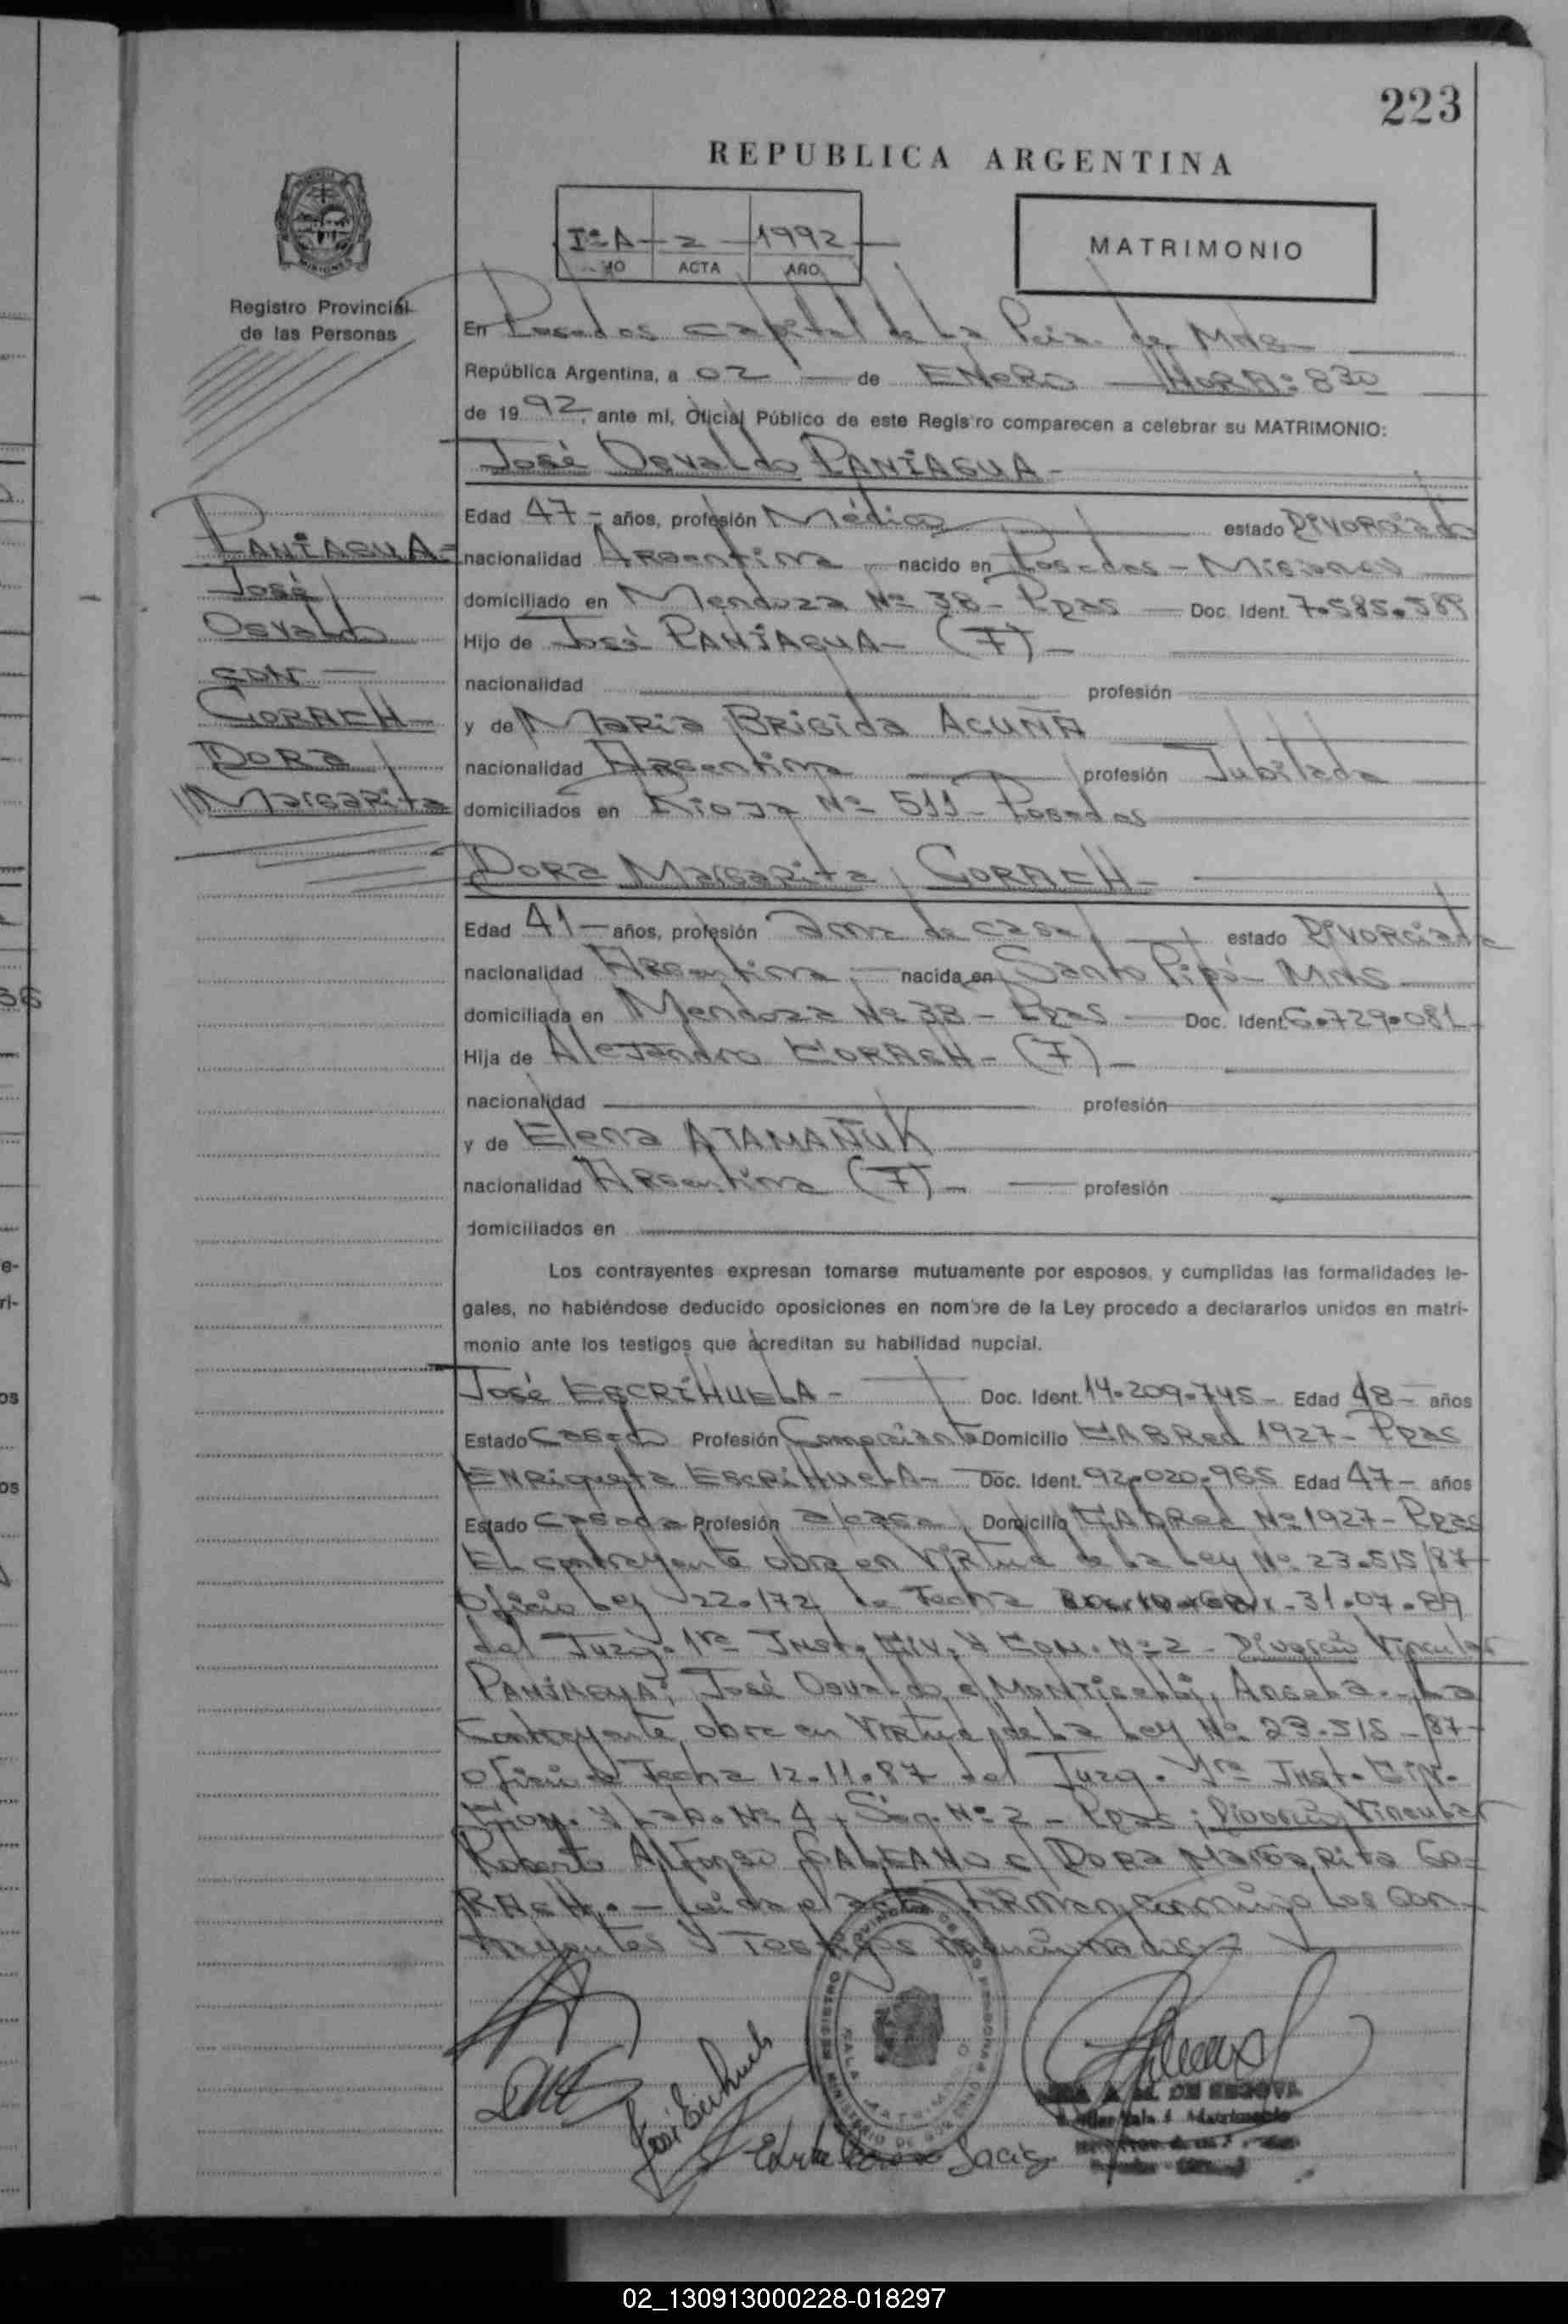 223
REPUBLICA ARGENTINA
Iº A - 2 - 1992
ACTA AÑO
MATRIMONIO
MISIONES
Registro Provincial
de las Personas
En Posadas capital de La Pcia. de MNS
República Argentina, a 02 de ENERO HORA: 8 30
de 1992, ante mí, Oficial Público de este Registro comparecen a celebrar su MATRIMONIO:
José Osvaldo PANIAGUA
Edad 47 - años, profesión Médico estado DIVORCIADO
nacionalidad Argentina nacido en Posadas - Misiones
domiciliado en Mendoza Nº 38 - Pdas Doc. Ident. 7.585.589
Hijo de José PANIAGUA - (F) -
nacionalidad profesión
y de Maria BRIGIDA ACUÑA
nacionalidad Argentina profesión Jubilada
domiciliados en Rioja Nº 511 - Posadas
PANIAGUA =
José
Osvaldo
CON
CORACH
DORA
Margarita
DORA Margarita CORACH -
Edad 41 - años, profesión ama de casa estado DIVORCIADA
nacionalidad Argentina nacida en Santo Pipó - MNS
domiciliada en Mendoza Nº 38 - Pdas Doc. Ident 6.729.081
Hija de Alejandro CORACH - (F) -
nacionalidad profesión
y de Elena ATAMAÑUK
nacionalidad Argentina (F) - profesión
domiciliados en
Los contrayentes expresan tomarse mutuamente por esposos, y cumplidas las formalidades le-
gales, no habiéndose deducido oposiciones en nombre de la Ley procedo a declararlos unidos en matri-
monio ante los testigos que acreditan su habilidad nupcial.
José ESCRIHUELA - Doc. Ident. 14.209.745 - Edad 48 - años
Estado Casado Profesión Comerciante Domicilio CABRed 1927 - Pdas
ENRiqueta ESCRIHUELA - Doc. Ident. 92.020.965 Edad 47 - años
Estado Casada Profesión a/casa Domicilio CABRed Nº 1927 - Pdas
El contrayente obra en virtud de La Ley Nº 23.515/87
Oficio Ley 22.172 de Fecha 31.07.89
del Juzg. 1ra Inst. Civ. y Com. Nº 2 - Divorcio Vincular
PANIAGUA, José Osvaldo c/ Monticelli, Angela. - La
Contrayente obra en virtud de La Ley Nº 23.515 - /87 -
Oficio de Fecha 12.11.87 del Juzg. 1ra Inst. Civ.
Com. y Lab. Nº 4, Sec. Nº 2 - Pdas; Divorcio Vincular
Roberto Alfonso GALEANO c/ DORA Margarita CO-
RACH. - Leida el acta Firman conmigo Los con-
trayentes y Testigos mencionados
DE SEGOVIA
02_130913000228-018297